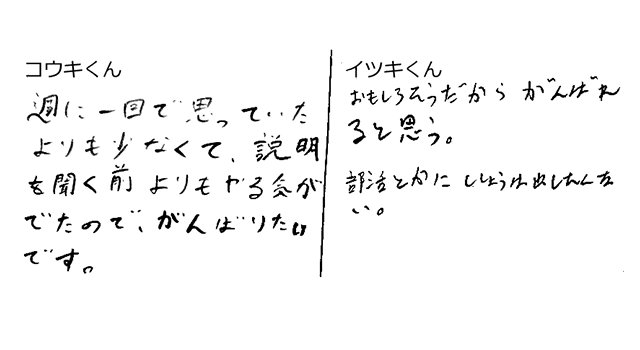 コウキくん
週に一回で思っていた
よりも少なくて、説明
を聞く前よりもやる気が
でたので、がんばりたい
です。
イツキくん
おもしろそうだから がんばれ
ると思う。
部活とかに ししょうは出したくな
い。